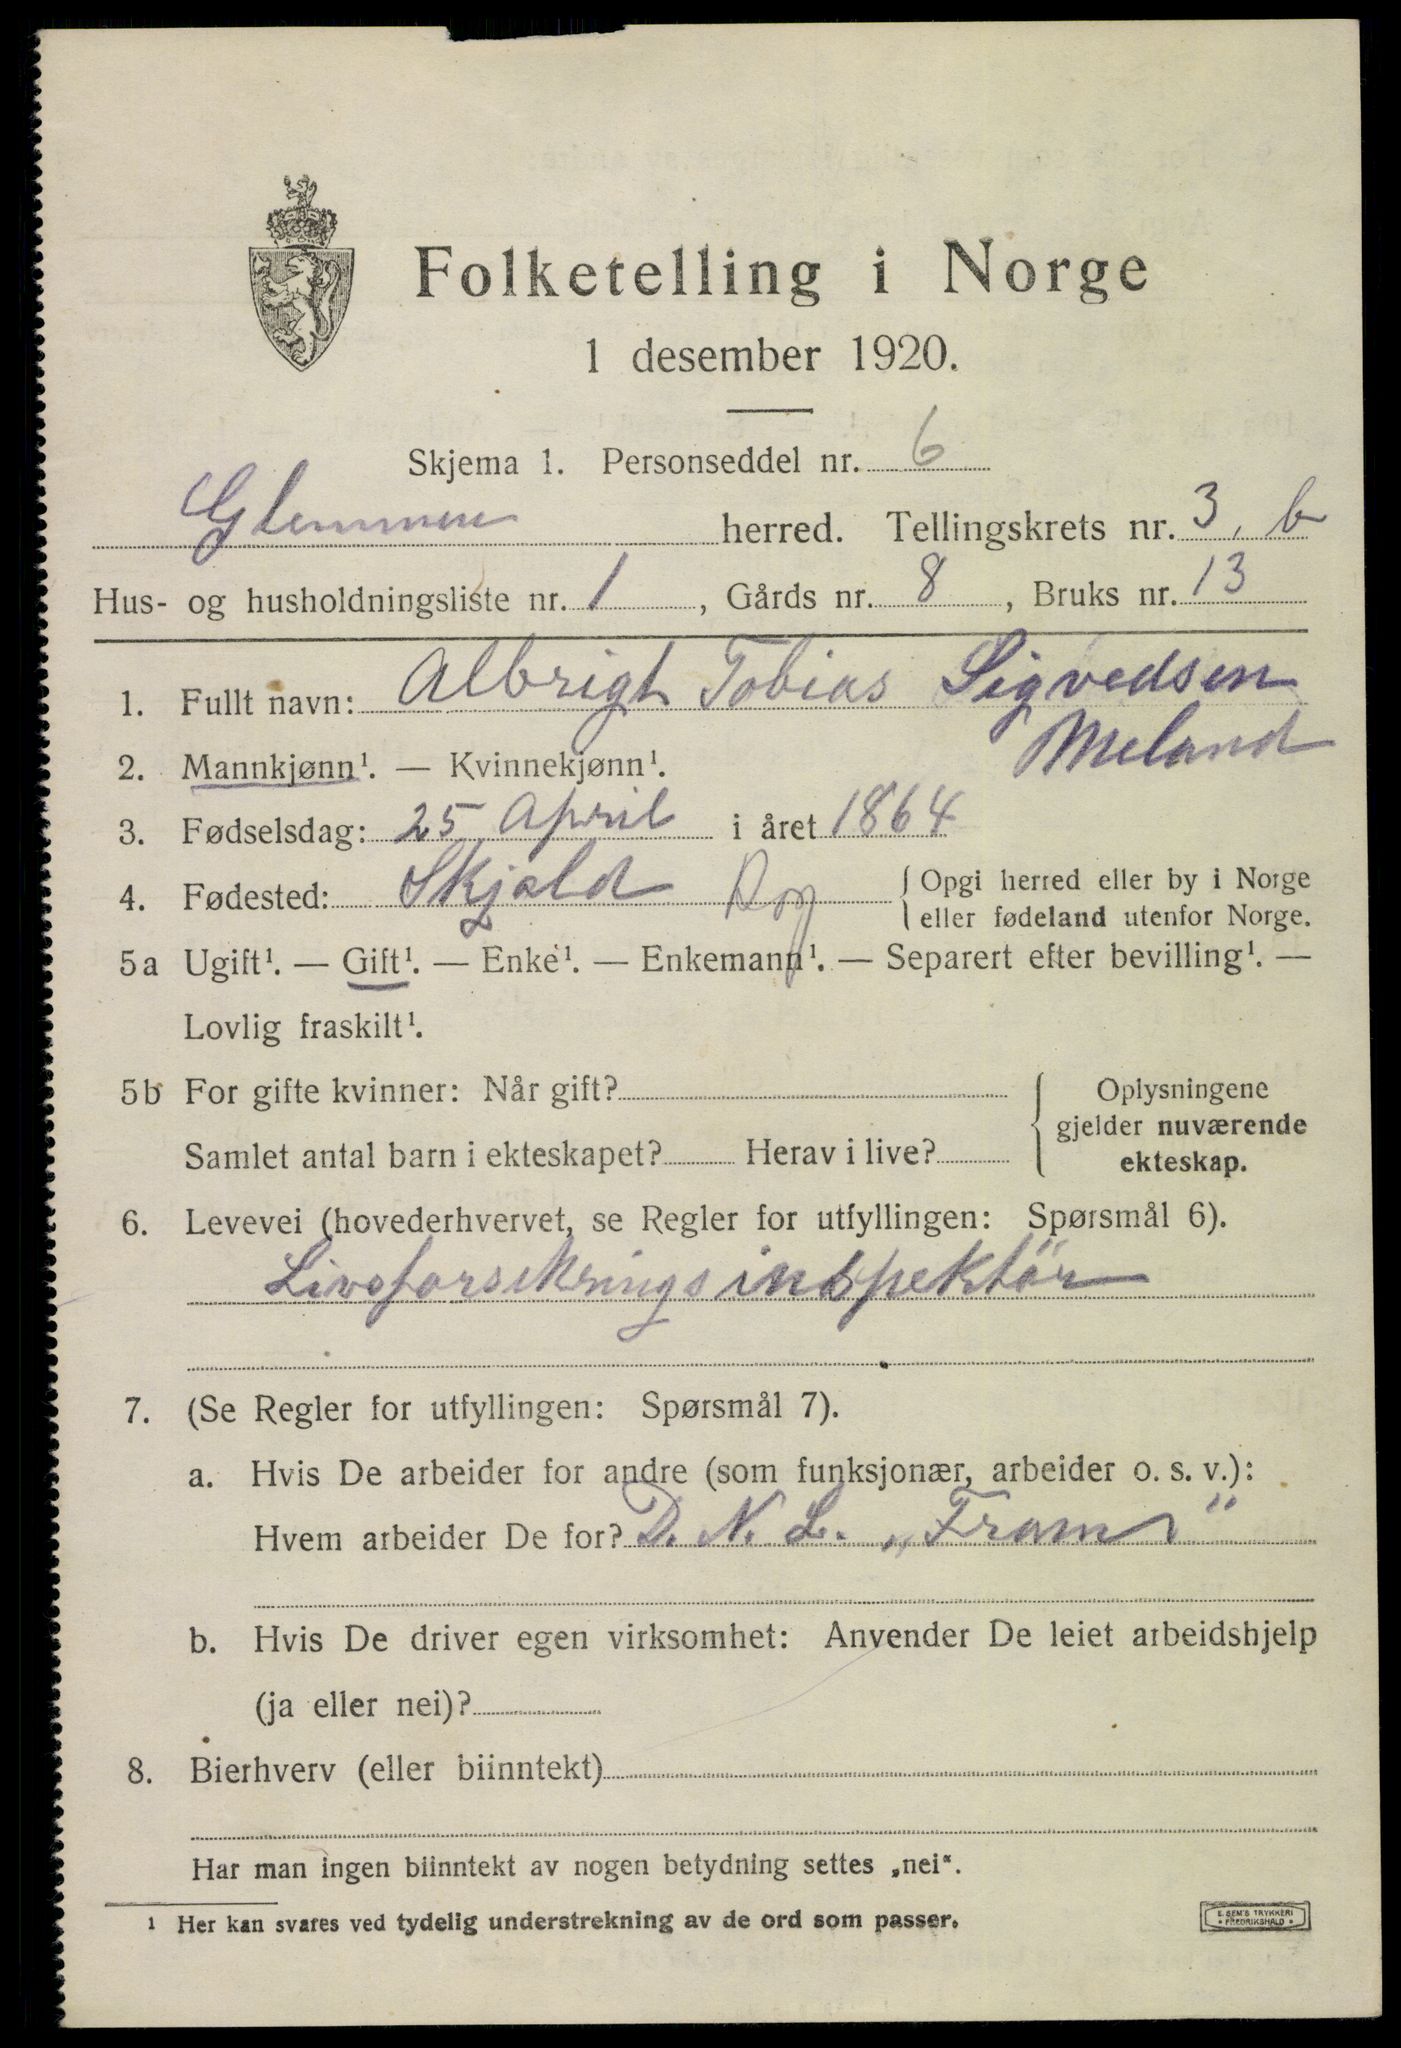 Folketelling i Norge
1 desember 1920.
Skjema 1. Personseddel nr. 6
Glemmen herred. Tellingskrets nr. 3, b
Hus- og husholdningsliste nr. 1, Gårds nr. 8, Bruks nr. 13
1. Fullt navn: Albrigt Tobias Sigvedsen
Meland
2. Mannkjønn¹. — Kvinnekjønn¹.
3. Fødselsdag: 25 April i året 1864
4. Fødested: Skjold Rog { Opgi herred eller by i Norge
eller fødeland utenfor Norge.
5a Ugift¹. — Gift¹. — Enke¹. — Enkemann¹. — Separert efter bevilling¹. —
Lovlig fraskilt¹.
5b For gifte kvinner: Når gift? { Oplysningene
gjelder nuværende
ekteskap.
Samlet antal barn i ekteskapet? Herav i live?
6. Levevei (hovederhvervet, se Regler for utfyllingen: Spørsmål 6).
Livsforsikringsinspektör
7. (Se Regler for utfyllingen: Spørsmål 7).
a. Hvis De arbeider for andre (som funksjonær, arbeider o. s. v.):
Hvem arbeider De for? D. N. L. „Fram"
b. Hvis De driver egen virksomhet: Anvender De leiet arbeidshjelp
(ja eller nei)?
8. Bierhverv (eller biinntekt)
Har man ingen biinntekt av nogen betydning settes „nei“.
¹ Her kan svares ved tydelig understrekning av de ord som passer.
E. SEM'S TRYKKERI
• FREDRIKSHALD •